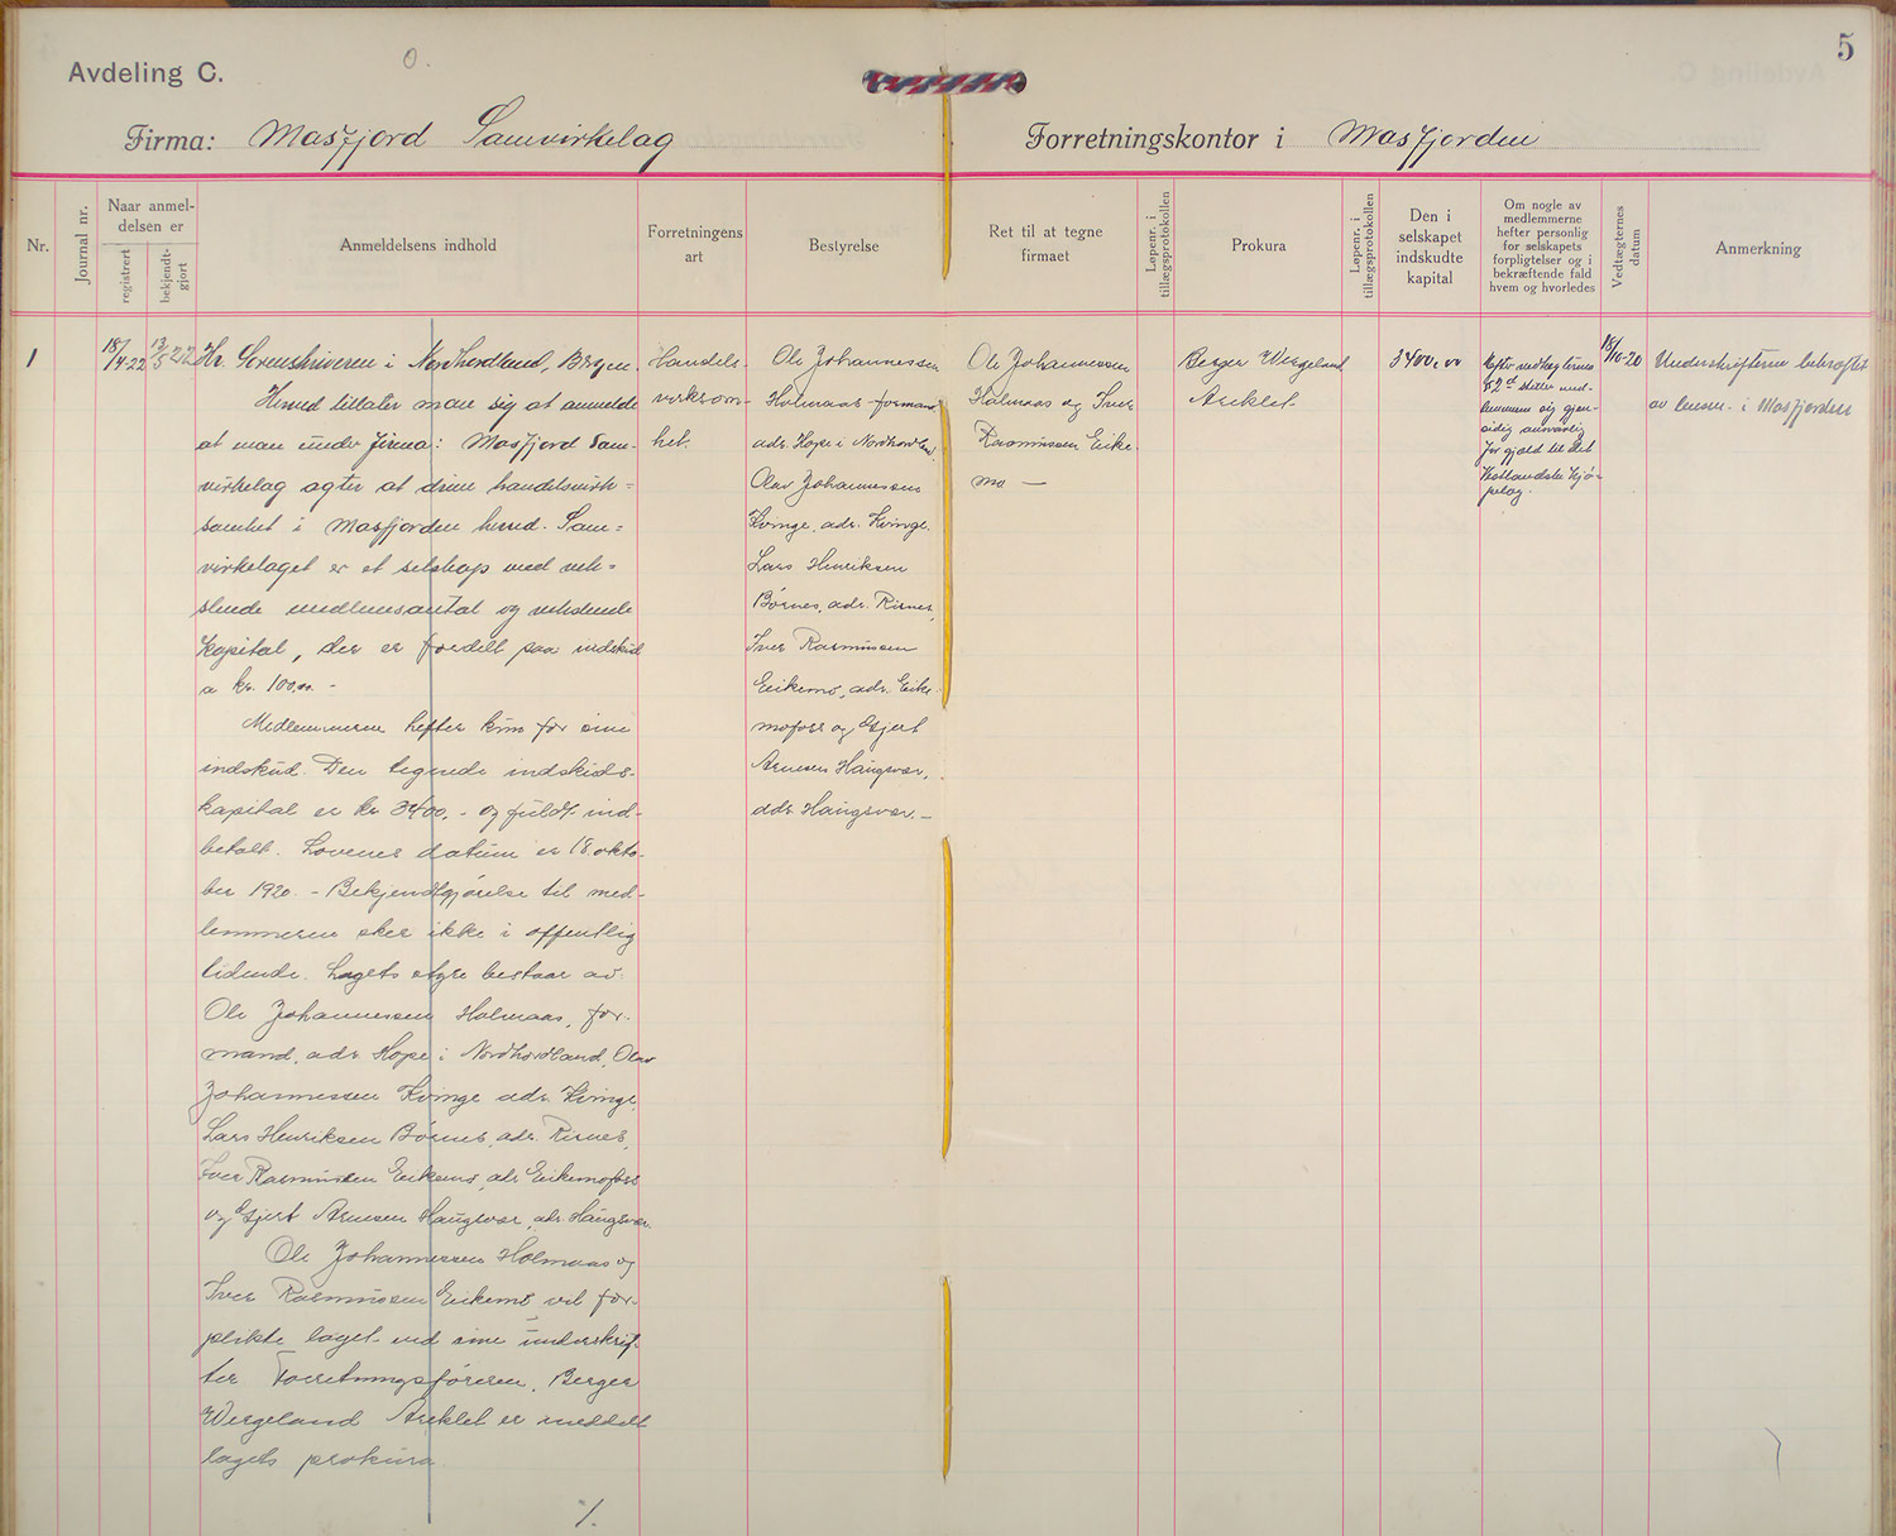 5
Avdeling C.
O.
Firma: Masfjord Samvirkelag
Forretningskontor i Masfjorden
Nr.
Journal nr.
Naar anmel-
delsen er
registrert
bekjendt-
gjort
Anmeldelsens indhold
Forretningens
art
Bestyrelse
Ret til at tegne
firmaet
Løpenr. i
tillægsprotokollen
Prokura
Løpenr. i
tillægsprotokollen
Den i
selskapet
indskudte
kapital
Om nogle av
medlemmerne
hefter personlig
for selskapets
forpligtelser og i
bekræftende fald
hvem og hvorledes
Vedtægternes
datum
Anmerkning
1
18/4-22
13/5 22
Hr. Sorenskriveren i Nordhordland, Bergen.
Herved tillater man sig at anmelde
at man under firma: Masfjord Sam-
virkelag agter at drive handelsvirk=
somhet i Masfjorden herred. Sam=
virkelaget er et selskap med vek=
slende medlemsantal og vekslende
kapital, der er fordelt paa indskud
a kr. 100,00. -
Medlemmerne hefter kun for sine
indskud. Den tegnede indskuds-
kapital er kr 3400. - og fuldt ind-
betalt. Lovenes datum er 18. okto-
ber 1920. - Bekjendtgjørelse til med-
lemmerne sker ikke i offentlig
tidende. Lagets styre bestaar av:
Ole Johannessen Holmaas, for-
mand, adr. Hope i Nordhordland, Olav
Johannessen Kvinge adr. Kvinge,
Lars Henriksen Børnes, adr. Risnes,
Iver Rasmussen Eikemo, adr Eikemofoss
og Gjert Arnesen Haugsvær, adr. Haugsvær.
Ole Johannessen Holmaas og
Iver Rasmussen Eikemo vil for-
plikte laget ved sine underskrif-
ter Forretningsføreren, Berger
Wergeland Areklet er meddelt
lagets prokura
%.
Handels-
virksom-
het.
Ole Johannessen
Holmaas - formand,
adr. Hope i Nordhordland,
Olav Johannessen
Kvinge, adr. Kvinge.
Lars Henriksen
Børnes, adr. Risnes,
Iver Rasmussen
Eeikemo, adr. Eike-
mofoss og Gjert
Arnesen Haugsvær,
adr. Haugsvær. -
Ole Johannessen
Holmaas og Iver
Rasmussen Eeike-
mo -
Berger Wergeland
Areklet.
3400,00
Efter vedtægternes
§ 2 d stiller med-
lemmene sig gjen-
sidig ansvarlig
for gjæld til det
Vestlandske Kjø-
pelag.
18/10-20
Underskrifterne bekræftet
av lensm. i Masfjorden